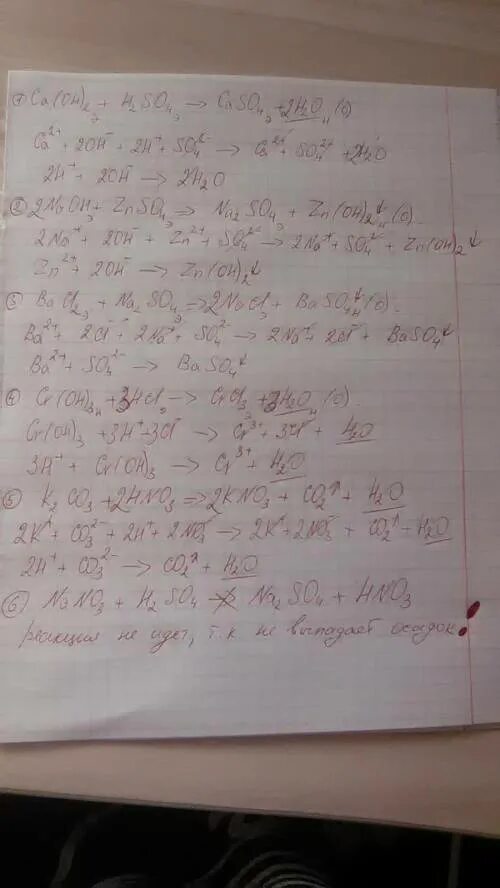 ① Ca(OH)₂ э + H₂SO₄ э → CaSO₄ э + 2H₂O н (o)
Ca²⁺ + 2OH⁻ + 2H⁺ + SO₄²⁻ → Ca²⁺ + SO₄²⁺ + 2H₂O
2H⁺ + 2OH⁻ → 2H₂O
② 2NaOH э + ZnSO₄ э → Na₂SO₄ э + Zn(OH)₂↓ н (o).
2Na⁺ + 2OH⁻ + Zn²⁺ + SO₄²⁻ → 2Na⁺ + SO₄²⁻ + Zn(OH)₂↓
Zn²⁺ + 2OH⁻ → Zn(OH)₂↓
③ BaCl₂ э + Na₂SO₄ э → 2NaCl э + BaSO₄↓ н (o).
Ba²⁺ + 2Cl⁻ + 2Na⁺ + SO₄²⁻ → 2Na⁺ + 2Cl⁻ + BaSO₄↓
Ba²⁺ + SO₄²⁻ → BaSO₄↓
④ Cr(OH)₃ н + 3HCl э → CrCl₃ э + 3H₂O н (o).
Cr(OH)₃ + 3H⁺ + 3Cl⁻ → Cr³⁺ + 3Cl⁻ + H₂O
3H⁺ + Cr(OH)₃ → Cr³⁺ + H₂O
⑤ K₂CO₃ + 2HNO₃ → 2KNO₃ + CO₂↑ + H₂O
2K⁺ + CO₃²⁻ + 2H⁺ + 2NO₃⁻ → 2K⁺ + 2NO₃⁻ + CO₂↑ + H₂O
2H⁺ + CO₃²⁻ → CO₂↑ + H₂O
⑥ NaNO₃ + H₂SO₄ ↛ Na₂SO₄ + HNO₃
реакция не идет, т.к не выпадает осадок.